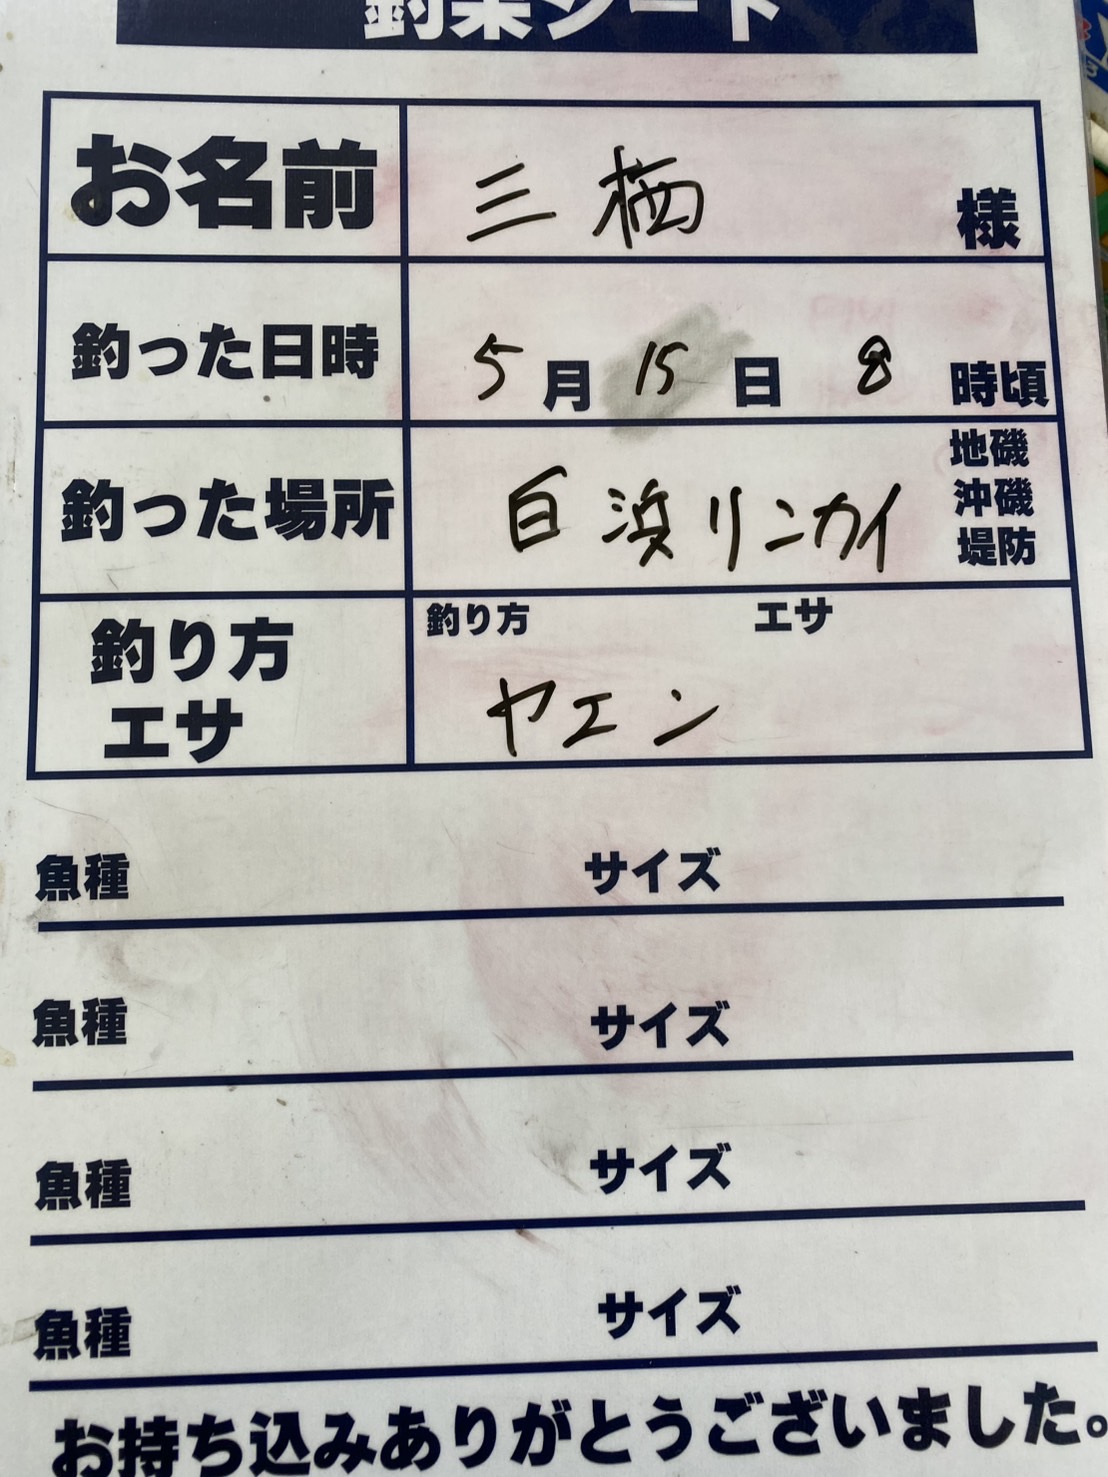 釣果シート
お名前 三栖 様
釣った日時 5月15日 8時頃
釣った場所 白浜リンカイ 地磯 沖磯 堤防
釣り方 エサ
釣り方 エサ
ヤエン
魚種 サイズ
魚種 サイズ
魚種 サイズ
魚種 サイズ
お持ち込みありがとうございました。